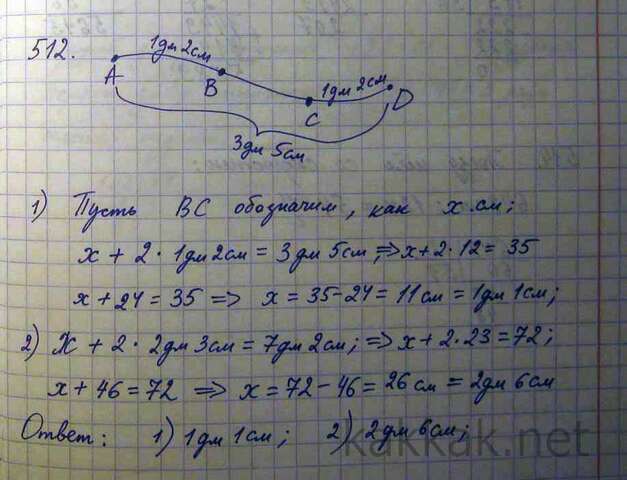 512.
1дм 2см
A
B
1дм 2см
C
D
3дм 5см
1) Пусть BC обозначим, как x см;
x + 2 · 1дм 2см = 3дм 5см, => x + 2 · 12 = 35
x + 24 = 35 => x = 35 - 24 = 11см = 1дм 1см;
2) x + 2 · 2дм 3см = 7дм 2см; => x + 2 · 23 = 72;
x + 46 = 72 => x = 72 - 46 = 26см = 2дм 6см
Ответ: 1) 1дм 1см; 2) 2дм 6см;
kakkak.net